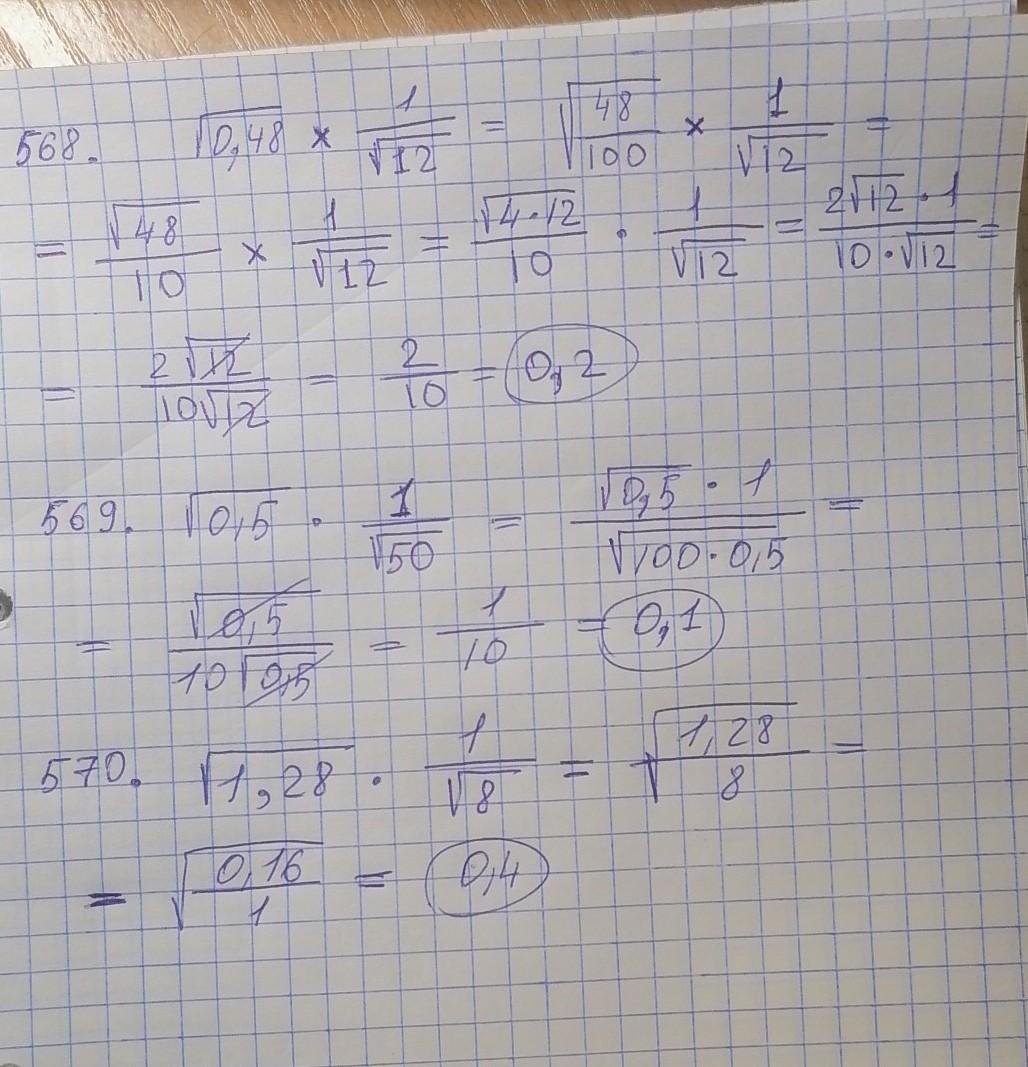 568. √0,48 × 1/√12 = √(48/100) × 1/√12 =
= √48/10 × 1/√12 = √(4·12)/10 · 1/√12 = 2√12·1/10·√12 =
= 2√12/10√12 = 2/10 = 0,2
569. √0,5 · 1/√50 = √0,5·1/√(100·0,5) =
= √0,5/10√0,5 = 1/10 = 0,1
570. √1,28 · 1/√8 = √(1,28/8) =
= √(0,16/1) = 0,4